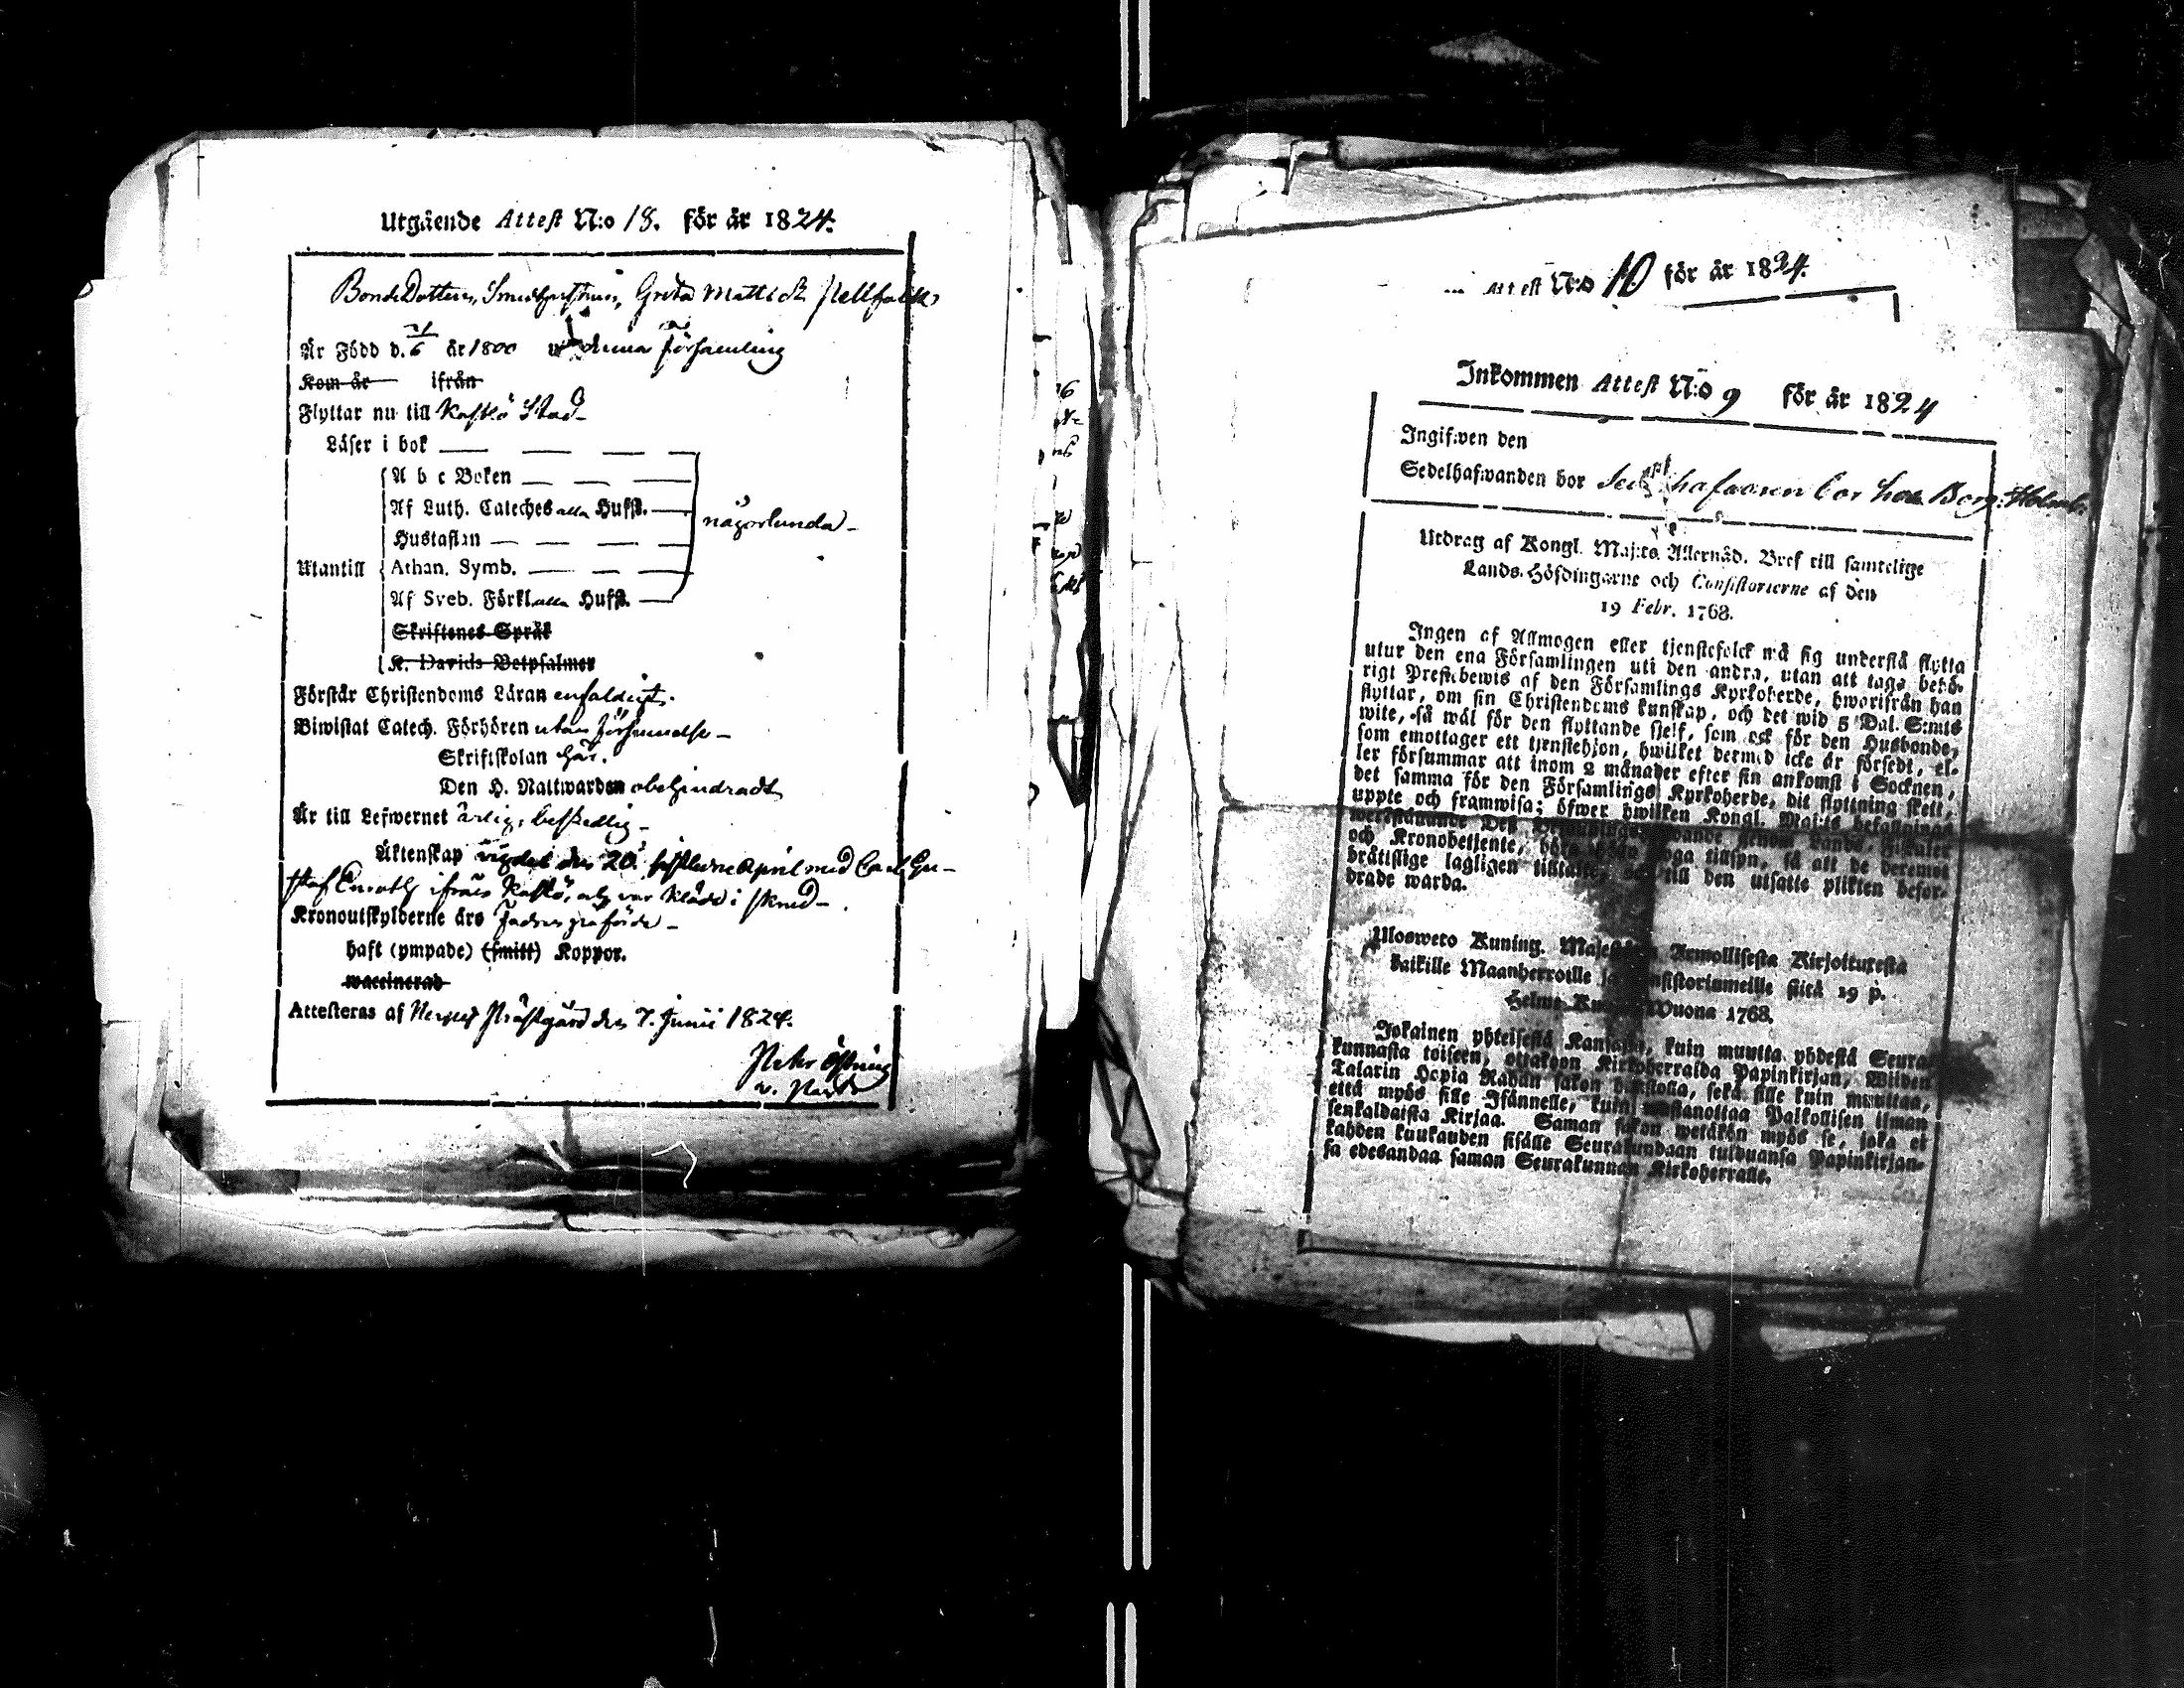 Utgående Attest N:o 18. för år 1824.
BondeDottern, Smedhustrun, Greta Mattsdr
Är Född d. 21/6 år 1800 denna församling
Kom år ifrån
Flyttar nu till Kaskö Stad
Läser i bok
Utantill
A b c Boken
Af Luth. Cateches alla Hufst.
Hustaflan
Athan. Symb.
Af Sveb. Förkl. alla Hufst.
någorlunda
Skriftenes Språk
K. Davids Botpsalmer
Förstår Christendoms Läran enfaldigt.
Biwistat Catech. Förhören utan försummelse
Skriftskolan här.
Den H. Nattwarden obehindradt
Är till Lefwernet ärlig, beskedlig
Äktenskap vigdes den 20. sistledne April med Carl Gu-
staf ifrån Kaskö,
Kronoutskylderne äro
haft (ympade) (smitt) Koppor.
waccinerad
Attesteras af Prästgård den 7. Junii 1824.
Attest N:o 10 för år 1824.
Inkommen Attest N:o 9 för år 1824
Ingifwen den
Sedelhafwanden bor
Utdrag af Kongl. Maj:ts Allernåd. Bref till samtelige
Lands-Höfdingarne och Consistorierne af den
19 Febr. 1768.
Ingen af Allmogen eller tjenstefolck må sig understå flytta
utur den ena Församlingen uti den andra, utan att taga behö-
rigt Prestebewis af den Församlings Kyrkoherde, hworifrån han
flyttar, om sin Christendoms kunskap, och det wid 5 Dal. S:mts
wite, så wäl för den flyttande sjelf, som ock för den Husbonde,
som emottager ett tjenstehjon, hwilket dermed icke är försedt, el-
ler försummar att inom 2 månader efter sin ankomst i Socknen,
det samma för den Församlings Kyrkoherde, dit flyttning skett,
uppte och framwisa; öfwer hwilken Kongl. Maj:ts befallnings
werkställande Dess genom Lands-Fiskaler
och Kronobetjente, noga tillsyn, så att de deremot
brätslige lagligen till den utsatte plikten befor-
drade warda.
Ulosweto Kuning. Majestetin Armollisesta Kirjoituxesta
kaikille Maanherroille ja Consistoriumeille siitä 19 p.
Helme-Kuun Wuona 1768.
Jokainen yhteisestä Kansasta, kuin muutta yhdestä Seura-
kunnasta toiseen, ottakoon Kirkoherralda Papinkirjan, Wiiden
Talarin Hopia Rahan sakon haastolla, sekä sille kuin muuttaa,
että myös sille Isännelle, kuin wastanottaa Palkollisen ilman
senkaldaista Kirjaa. Saman sakon wetäkön myös se, joka ei
kahden kuukauden sisälle Seurakundaan tulduansa Papinkirjan-
sa edesandaa saman Seurakunnan Kirkoherralle.